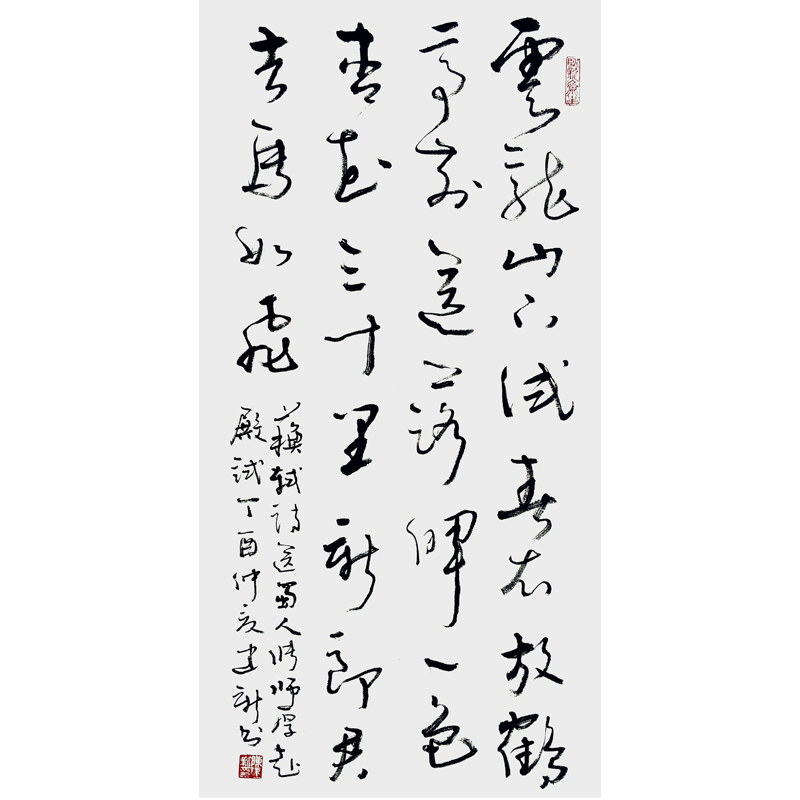 雲龍山下試春衣放鶴
亭前送落暉一色
杏花三十里新郎君
去馬如飛
蘇軾詩送蜀人張師厚赴
殿試丁酉仲夏建新書